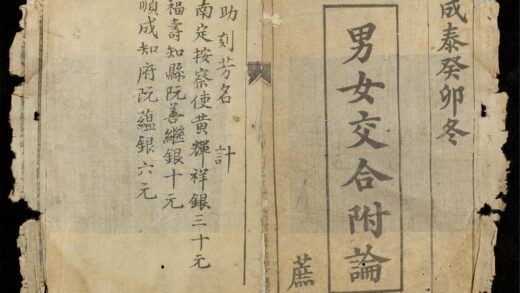 成泰癸卯冬
男女交合附論
蔗
助刻芳名 計
南定按察使黃輝祥銀三十元
福壽知縣阮善繼銀十元
順成知府阮蘊銀六元